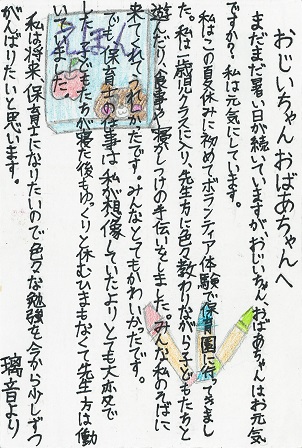 おじいちゃん おばあちゃんへ
まだまだ暑い日が続いていますが、おじいちゃん、おばあちゃんはお元気
ですか？私は元気にしています。
私はこの夏休みに初めてボランティア体験で保育園に行ってきまし
た。私は一歳児クラスに入り、先生方に色々教わりながら子どもたちと
遊んだり、食事や寝かしつけの手伝いをしました。みんな私のそばに
来てくれて、うれしかったです。みんなとてもかわいかったです。
でも、保育士の仕事は私が想像していたよりとても大変で
した。子どもたちが寝た後もゆっくりと休むひまもなくて先生方は働
いてました。
私は将来、保育士になりたいので色々な勉強を今から少しずつ
がんばりたいと思います。
璃音より
えほん